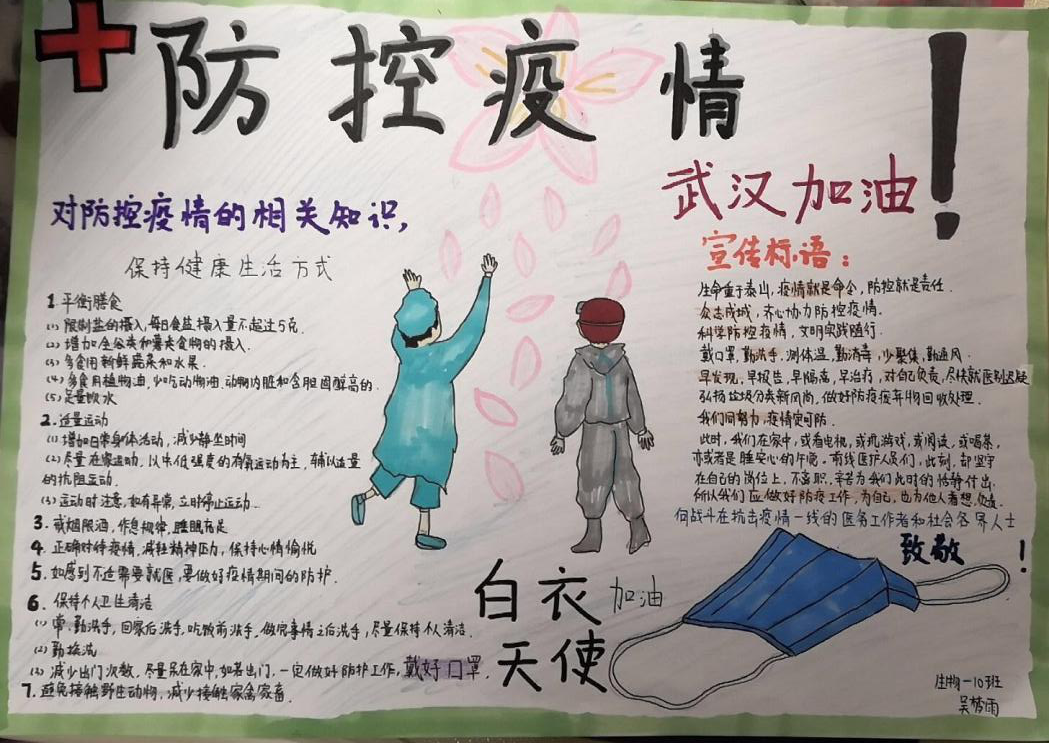 防控疫情!
武汉加油
对防控疫情的相关知识,
保持健康生活方式
1.平衡膳食
(1)限制盐的摄入,每日食盐摄入量不超过5克.
(2)增加全谷类和薯类食物的摄入.
(3)多食用新鲜蔬菜和水果.
(4)多食用植物油,少吃动物油、动物内脏和含胆固醇高的.
(5)足量饮水
2.适量运动
(1)增加日常身体活动,减少静坐时间
(2)尽量在家运动,以中低强度的有氧运动为主,辅以适量
的抗阻运动.
(3)运动时注意,如有异常,立时停止运动.
3.戒烟限酒,作息规律,睡眠充足
4.正确对待疫情,减轻精神压力,保持心情愉悦
5.如感到不适需要就医,要做好疫情期间的防护.
6.保持个人卫生清洁
(1)常、勤洗手,回家后洗手,吃饭前洗手,做完事情之后洗手,尽量保持个人清洁.
(2)勤换洗
(3)减少出门次数,尽量呆在家中,如若出门,一定做好防护工作,戴好口罩.
7.避免接触野生动物,减少接触家禽家畜.
宣传标语:
生命重于泰山,疫情就是命令,防控就是责任.
众志成城,齐心协力防控疫情.
科学防控疫情,文明实践随行.
戴口罩,勤洗手,测体温,勤消毒,少聚集,勤通风.
早发现,早报告,早隔离,早治疗,对自己负责,尽快就医别迟疑
弘扬垃圾分类新风尚,做好防疫废弃物回收处理.
我们同努力,疫情定可防.
此时,我们在家中,或看电视,或玩游戏,或阅读,或喝茶,
亦或者是睡安心的午觉。有线医护人员们,此刻,却坚守
在自己的岗位上,不离职,辛苦为我们此时的恬静付出.
所以我们应做好防疫工作,为自己,也为他人着想.
向战斗在抗击疫情一线的医务工作者和社会各界人士
致敬!
白衣
天使
加油
生物一10班
吴梦雨